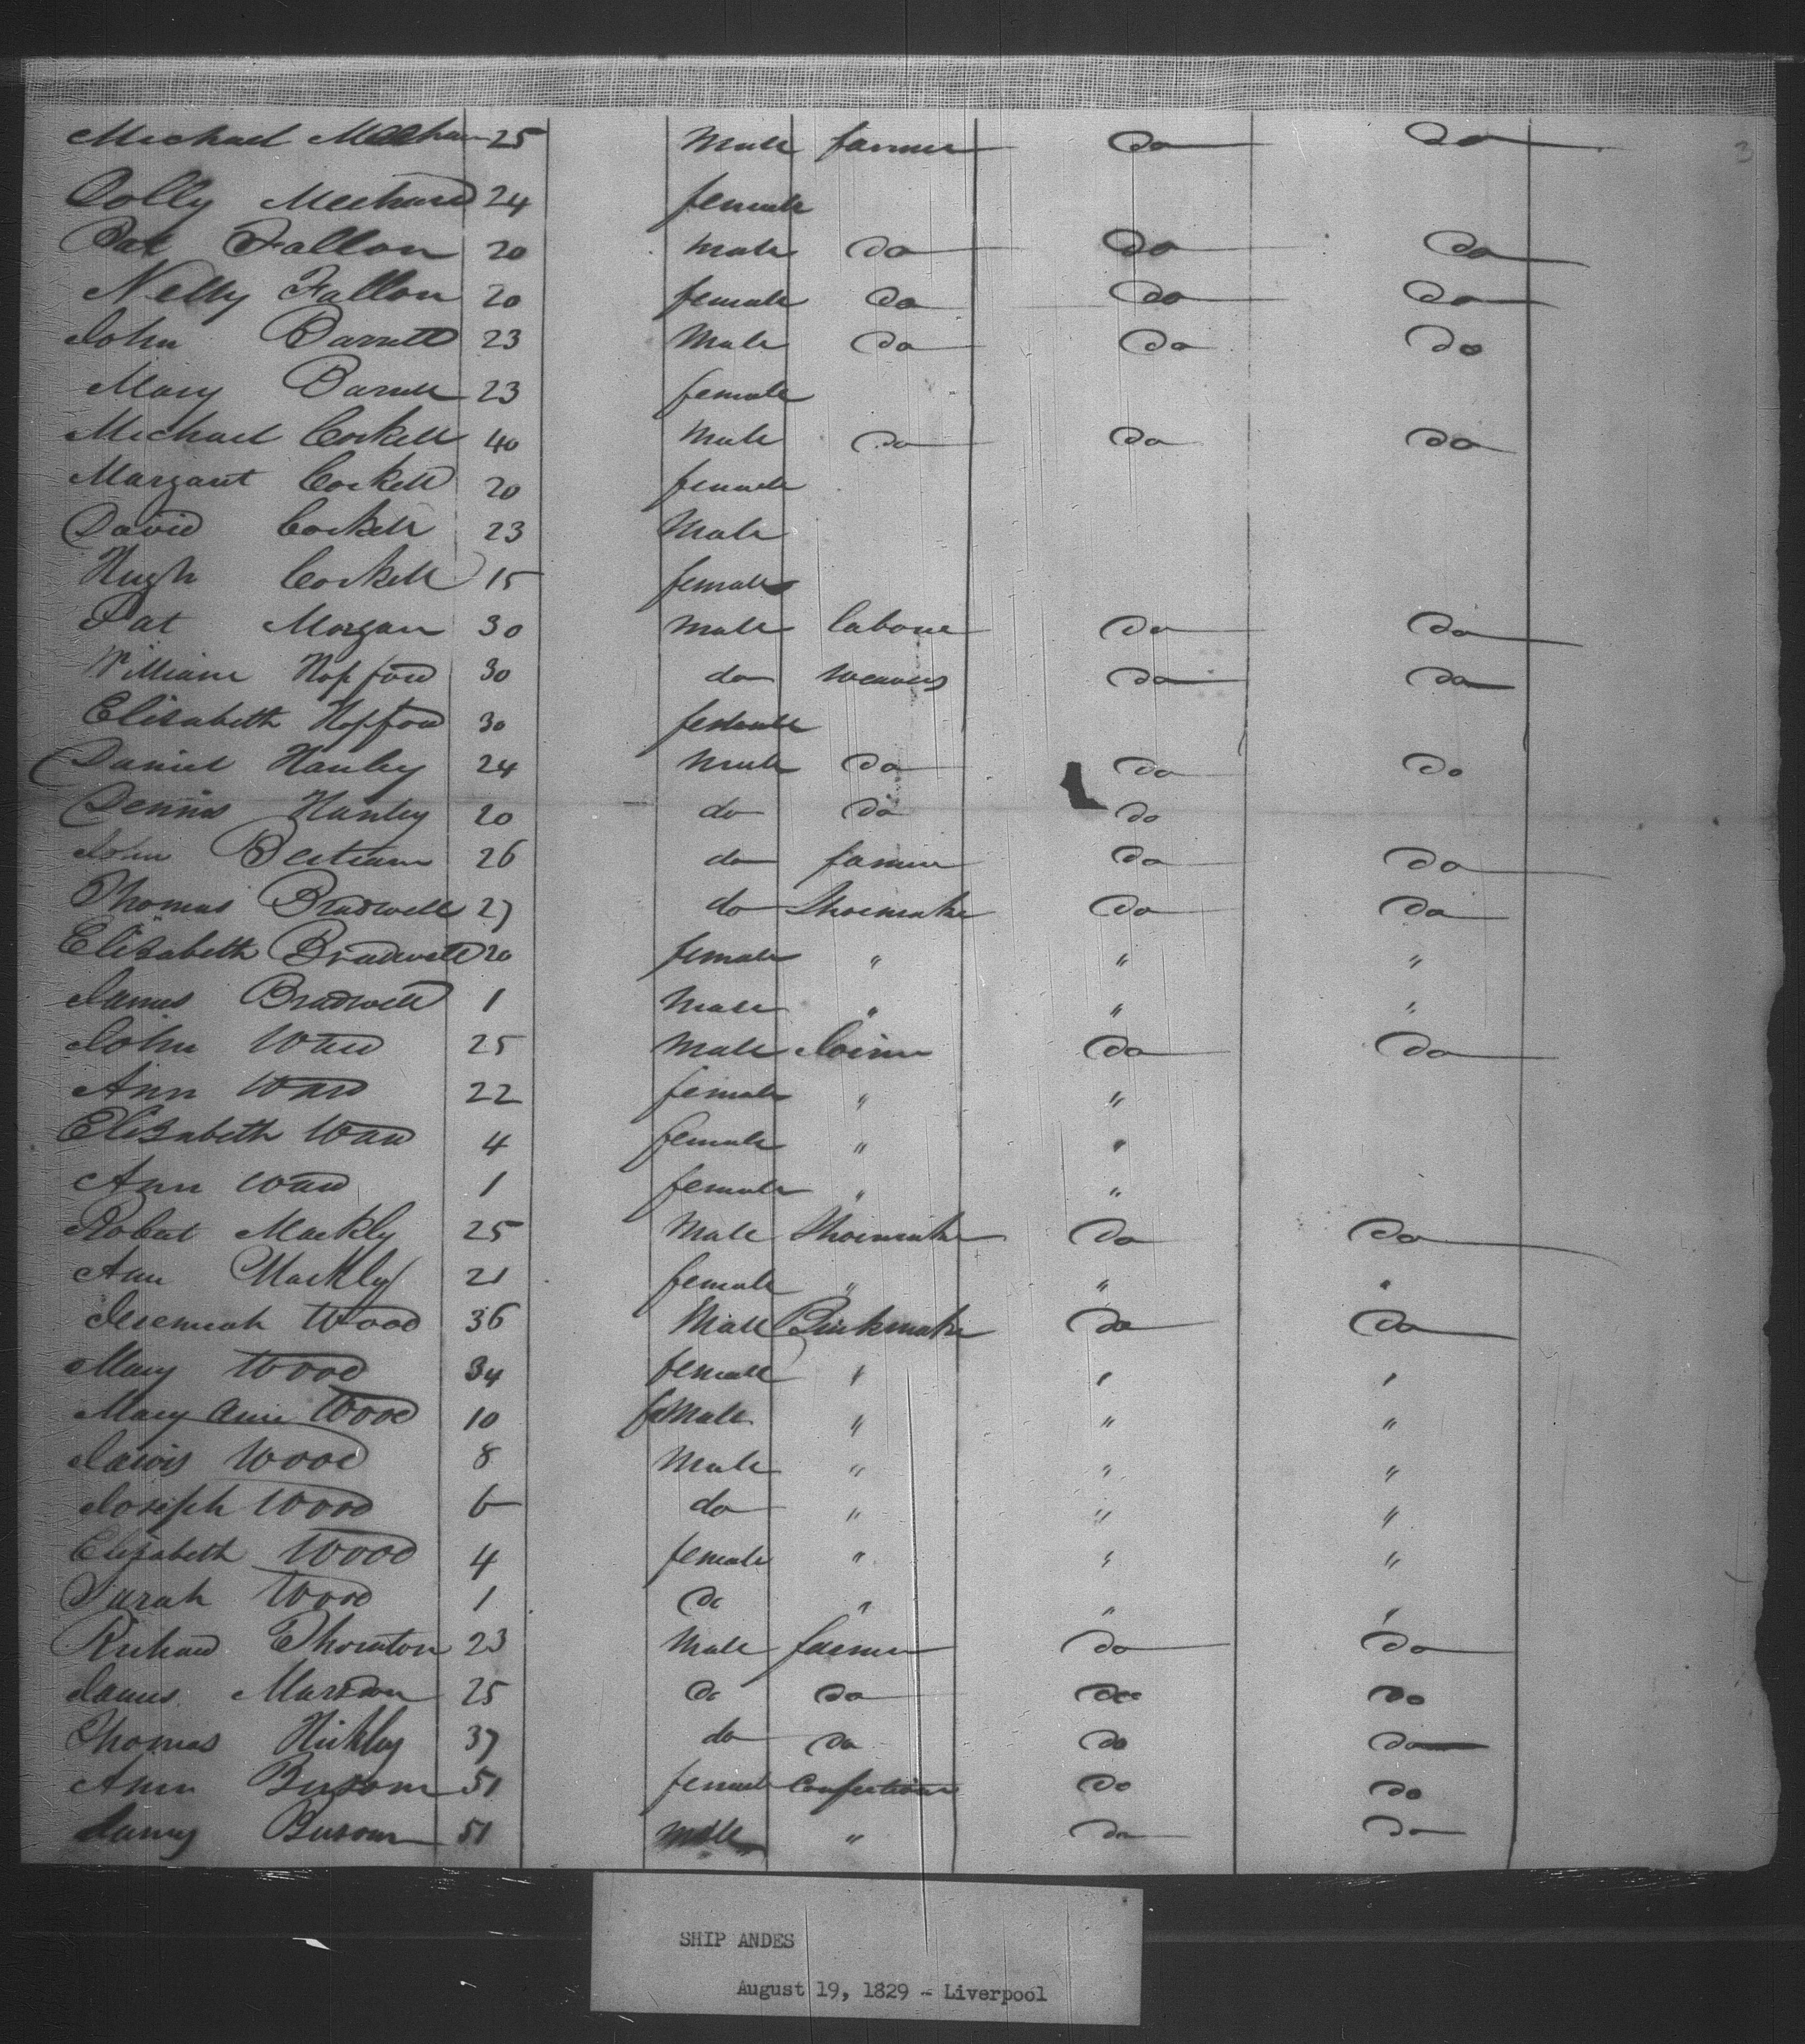 3
Michael Meehan 25 Male farmer do do
Dolly Meehan 24 female
Pat Fallon 20 male do do do
Nelly Fallon 20 female do do do
John Barrett 23 Male do do do
Mary Barrett 23 female
Michael Cockell 40 Male do do do
Margaret Cockell 20 female
David Cockell 23 Male
Hugh Cockell 15 female
Pat Morgan 30 Male laboue do do
William Hopford 30 do weavers do do
Elizabeth Hopford 30 female
Daniel Hanley 24 Male do do do
Dennis Hanley 20 do do do
John 26 do farmer do do
Thomas Bradwell 27 do Shoemaker do do
Elizabeth Bradwell 20 female " " "
James Bradwell 1 Male " " "
John Ward 25 Male do do
Ann Ward 22 female " "
Elizabeth Ward 4 female " "
Ann Ward 1 female " "
Robert Mackly 25 Male Shoemaker do do
Ann Mackly 21 female " " "
Jeremiah Wood 36 Male do do
Mary Wood 34 female " " "
Mary Ann Wood 10 feMale " " "
Wood 8 Male " " "
Joseph Wood 6 do " " "
Elizabeth Wood 4 female " " "
Sarah Wood 1 do " " "
Richard Thornton 23 Male farmer do do
James 25 do do do do
Thomas Hickley 37 do do do do
Ann 51 female Confectioner do do
51 male " do do
SHIP ANDES
August 19, 1829 - Liverpool